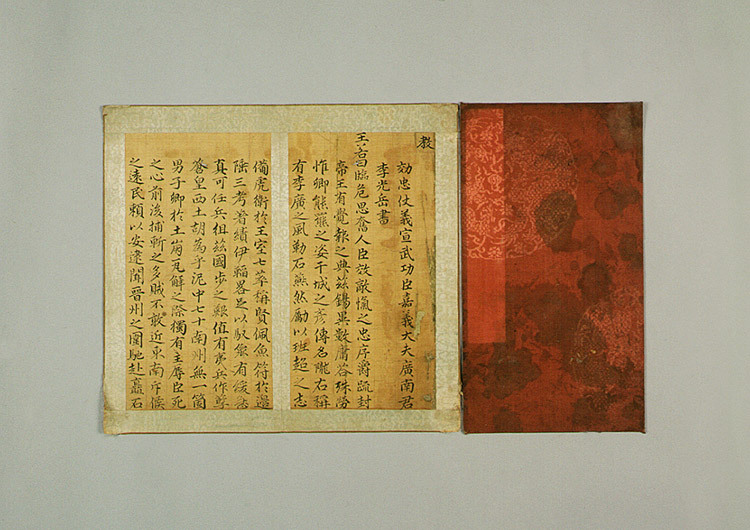 教
効忠仗義宣武功臣嘉義大夫廣南君
李光岳書
王若曰臨危思奮人臣效敵愾之忠序爵疏封
帝王有覺報之典玆錫異數庸答殊勞
惟卿熊羆之姿干城之彦傳名隴右稱
有李廣之風勒石燕然勵以班超之志
備虎衛於王室七萃稱賢佩魚符於邊
陲三考着績伊韜畧足以馭衆有緩急
真可任兵徂玆國步之艱值有夷兵作孼
皇西土胡爲乎泥中七十南州無一箇
男子卿於土崩瓦解之際獨有主辱臣死
之心前後捕斬之多賊不敢近東南序候
之遠民賴以安逮聞晉州之圍馳赴矗石